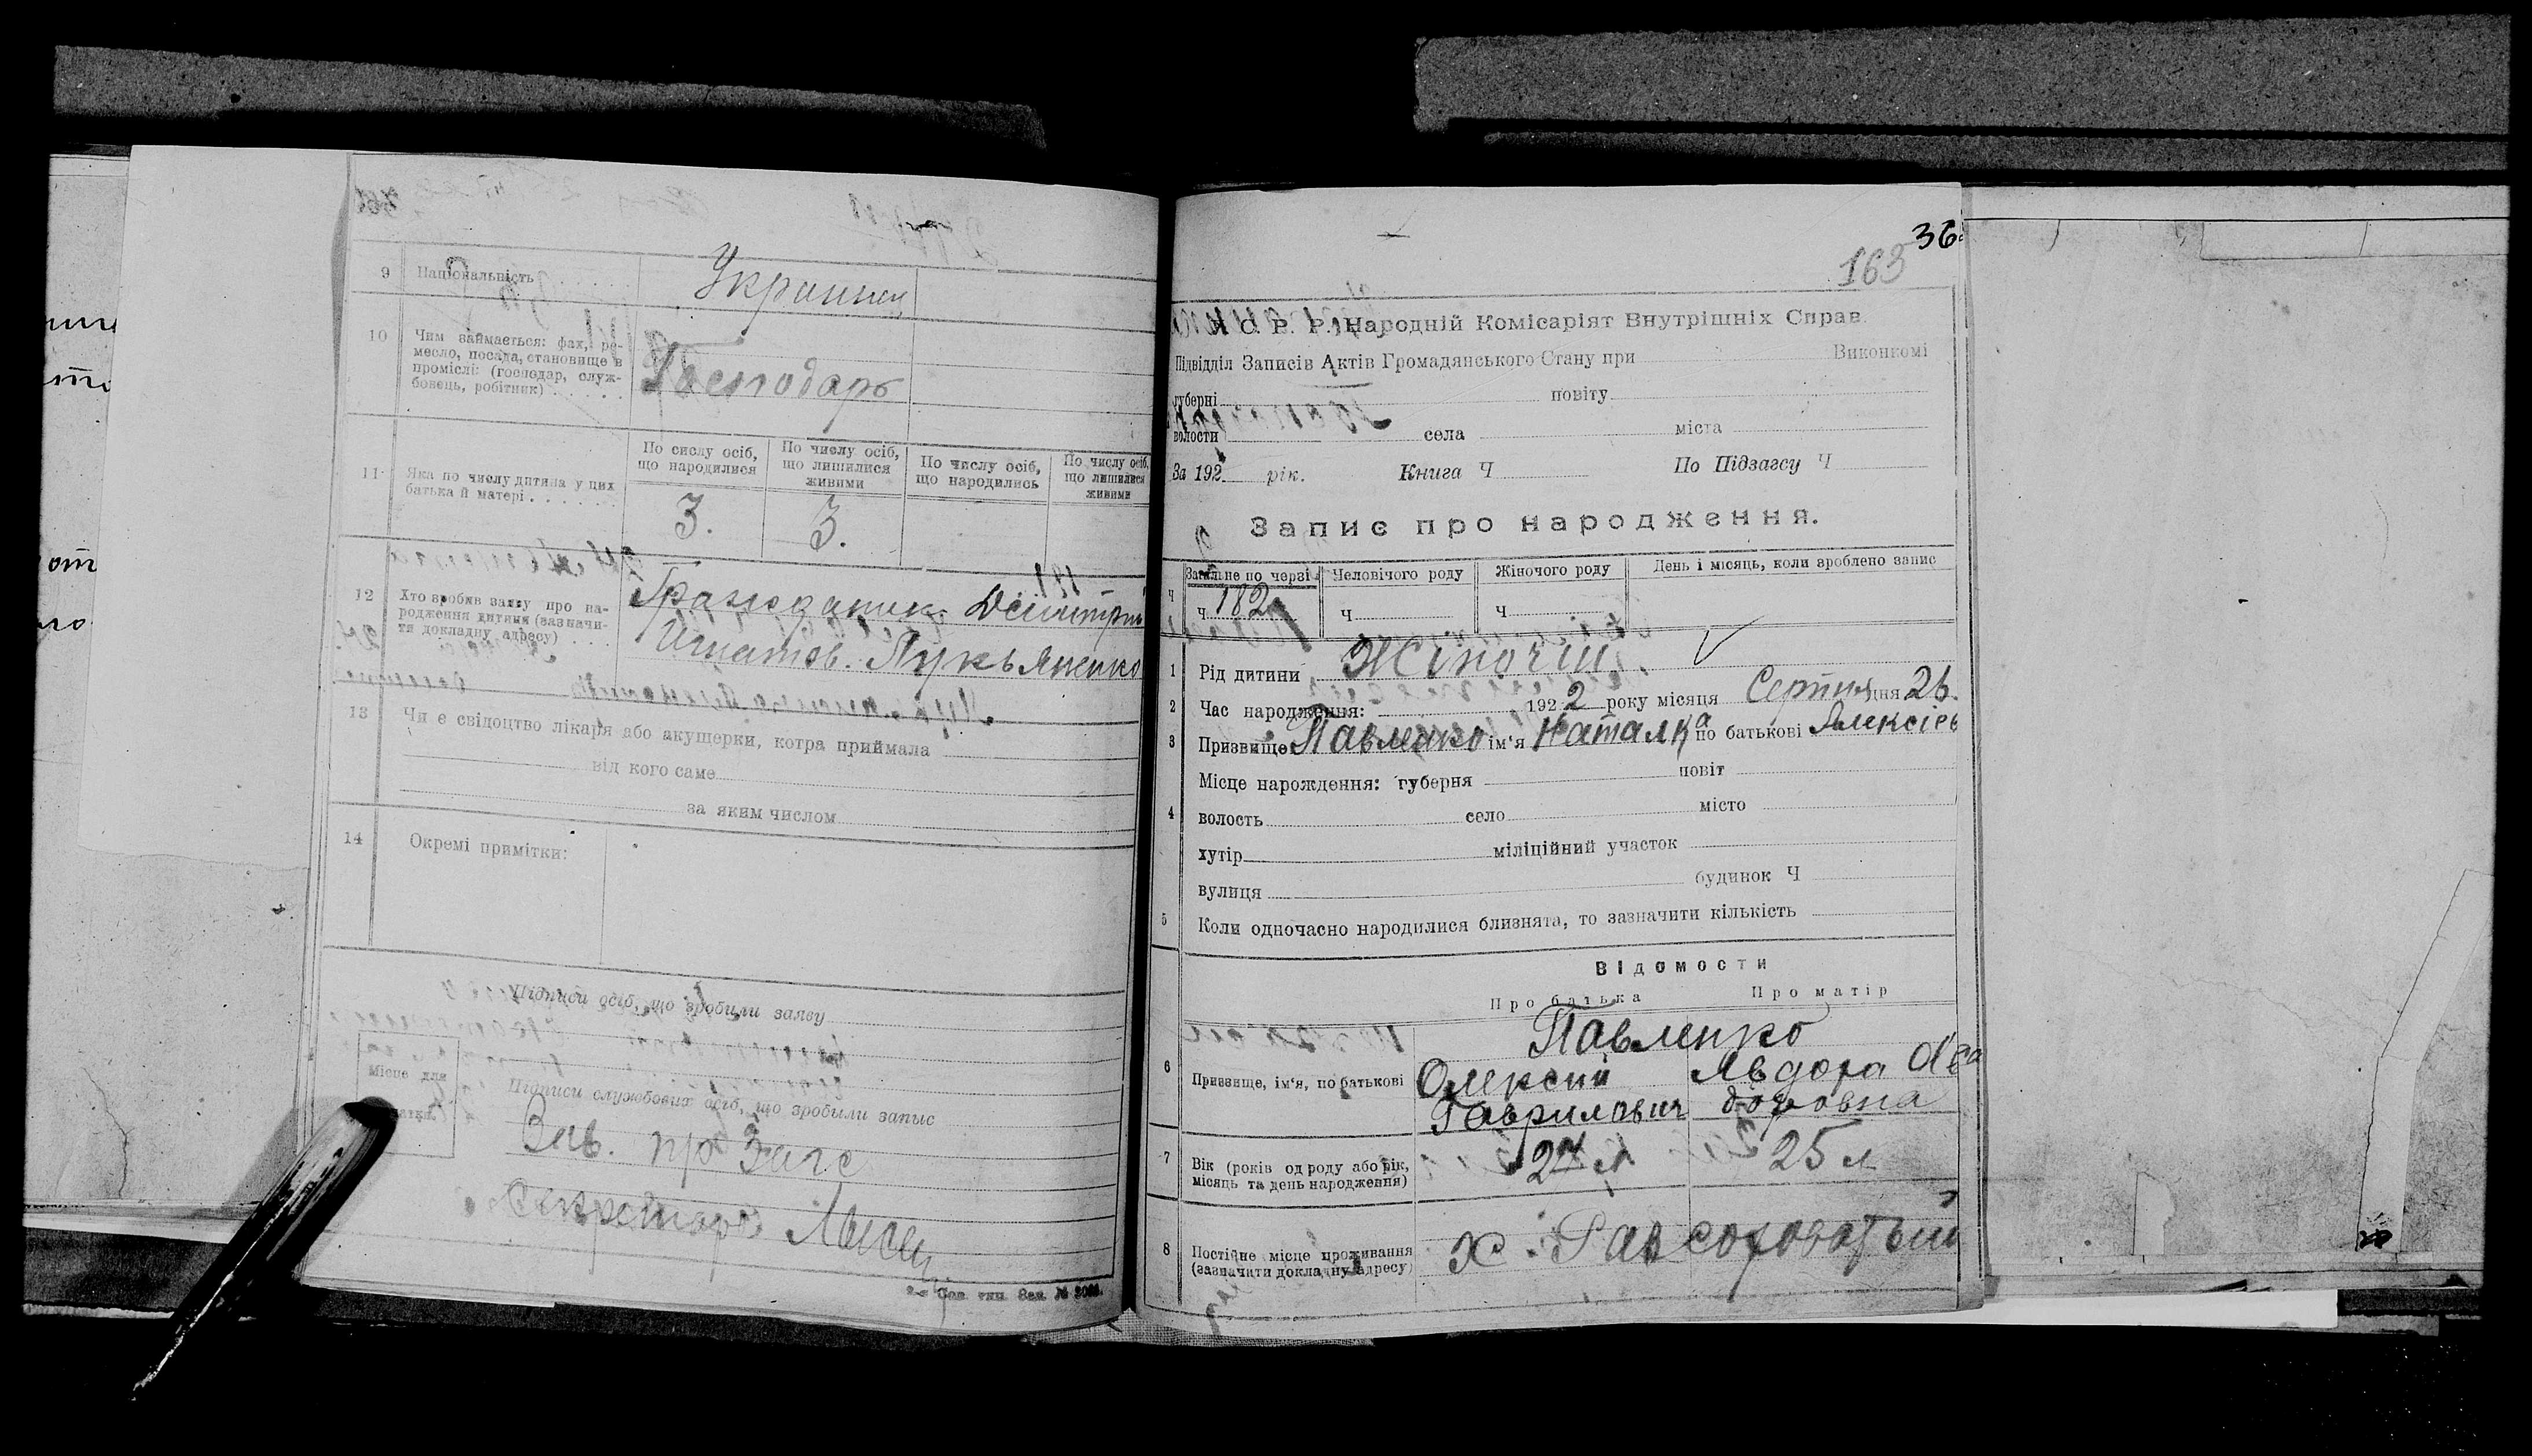 9 Національність Украинец
10 Чим займається: фах, ре-
месло, посада, становище в
промислі: (господар, служ-
бовець, робітник) Господарь
11 Яка по числу дитина у цих
батька й матері
По числу осіб,
що народилися
По числу осіб,
що лишилися
живими
По числу осіб,
що народились
По числу осіб,
що лишилися
живими
3. 3.
12 Хто зробив заяву про на-
родження дитини (зазначи-
ти докладну адресу)
Гражданин Дмитрий
Игнатов. Лукьяненко
13 Чи є свідоцтво лікаря або акушерки, котра приймала
від кого саме
за яким числом
14 Окремі примітки:
Підписи осіб, що зробили заяву
Місце для
Підписи службових осіб, що зробили запис
Зав. пр Загс
Секретарь
36
163
У. С. Р. Р. Народній Комісаріят Внутрішніх Справ
Підвідділ Записів Актів Громадянського Стану при Виконкомі
губерні повіту
волости села міста
За 192 рік. Книга Ч По Підзагсу Ч
Запис про народження.
Загальне по черзі Человічого роду Жіночого роду День і місяць, коли зроблено запис
Ч 182 Ч Ч
1 Рід дитини Жіночій
2 Час народження: 1922 року місяця Серпня дня 26.
3 Призвище Павленко ім'я Наталка по батькові Алексіев
Місце нарождення: губерня повіт
4 волость село місто
хутір міліційний участок
вулиця будинок Ч
5 Коли одночасно народилися близнята, то зазначити кількість
Відомости
Про батька Про матір
6 Призвище, ім'я, по батькові
Павленко
Олексій Явдоха
Гаврилович
7 Вік (років од роду або рік,
місяць та день народження) 25 л
8 Постійне місце проживання
(зазначити докладну адресу) х.